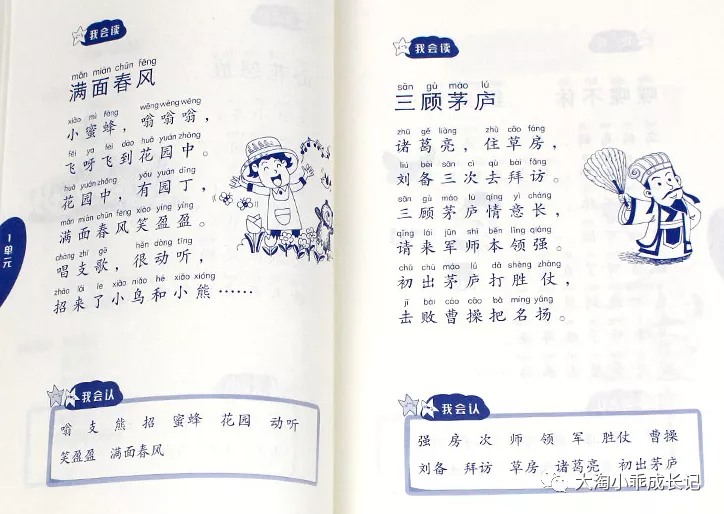 我会读
mǎn miàn chūn fēng
满面春风
xiǎo mì fēng wēng wēng wēng
小蜜蜂，嗡嗡嗡，
fēi ya fēi dào huā yuán zhōng
飞呀飞到花园中。
huā yuán zhōng yǒu yuán dīng
花园中，有园丁，
mǎn miàn chūn fēng xiào yíng yíng
满面春风笑盈盈。
chàng zhī gē hěn dòng tīng
唱支歌，很动听，
zhāo lái le xiǎo niǎo hé xiǎo xióng
招来了小鸟和小熊……
1单元
我会认
嗡 支 熊 招 蜜蜂 花园 动听
笑盈盈 满面春风
我会读
sān gù máo lú
三顾茅庐
zhū gě liàng zhù cǎo fáng
诸葛亮，住草房，
liú bèi sān cì qù bài fǎng
刘备三次去拜访。
sān gù máo lú qíng yì cháng
三顾茅庐情意长，
qǐng lái jūn shī běn lǐng qiáng
请来军师本领强。
chū chū máo lú dǎ shèng zhàng
初出茅庐打胜仗，
jī bài cáo cāo bǎ míng yáng
击败曹操把名扬。
我会认
强 房 次 师 领 军 胜仗 曹操
刘备 拜访 草房 诸葛亮 初出茅庐
大淘小乖成长记